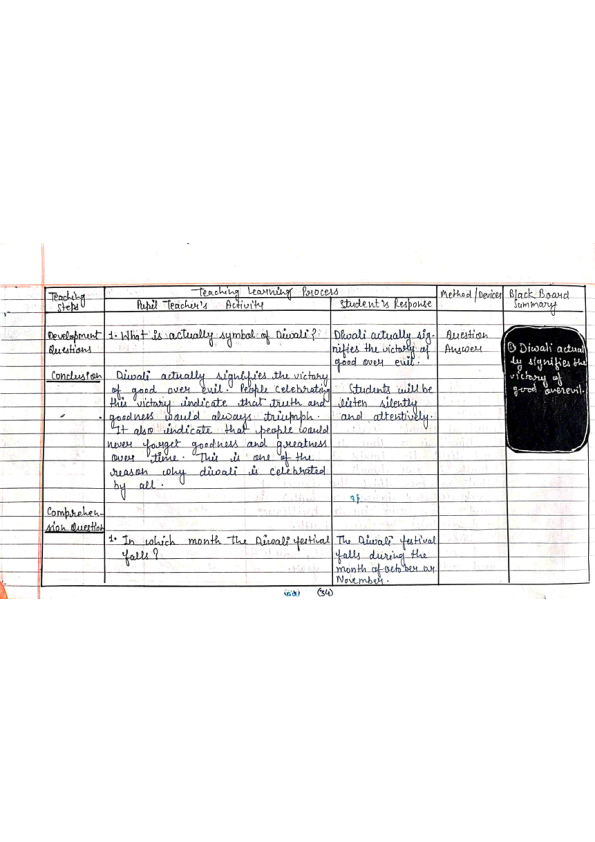 Teaching Steps
Teaching Learning Process
Pupil Teacher's Activity
Student's Response
Method/Devices
Black Board Summary
Development Questions
1. What is actually symbol of Diwali?
Diwali actually sig-
nifies the victory of
good over evil.
Question
Answer
① Diwali actual
ly signifies the
victory of
good over evil.
Conclusion
Diwali actually signifies the victory
of good over evil. People celebrating
this victory indicate that truth and
goodness would always triumph.
It also indicate that people would
never forget goodness and greatness
over time. This is one of the
reason why diwali is celebrated
by all.
Students will be
listen silently
and attentively.
Comprehen-
sion Question
1. In which month the Diwali festival
falls?
The Diwali festival
falls during the
month of october or
November.
(34)